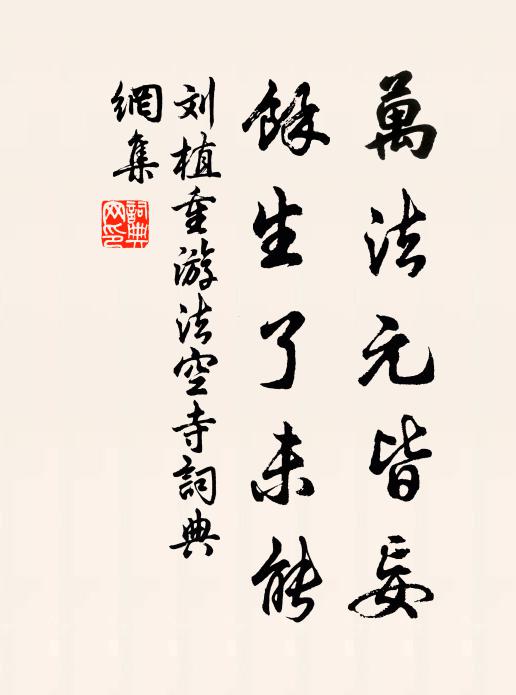 萬法元皆妄
餘生了未能
刘植重游法空寺詞典
網集
詞典
网印